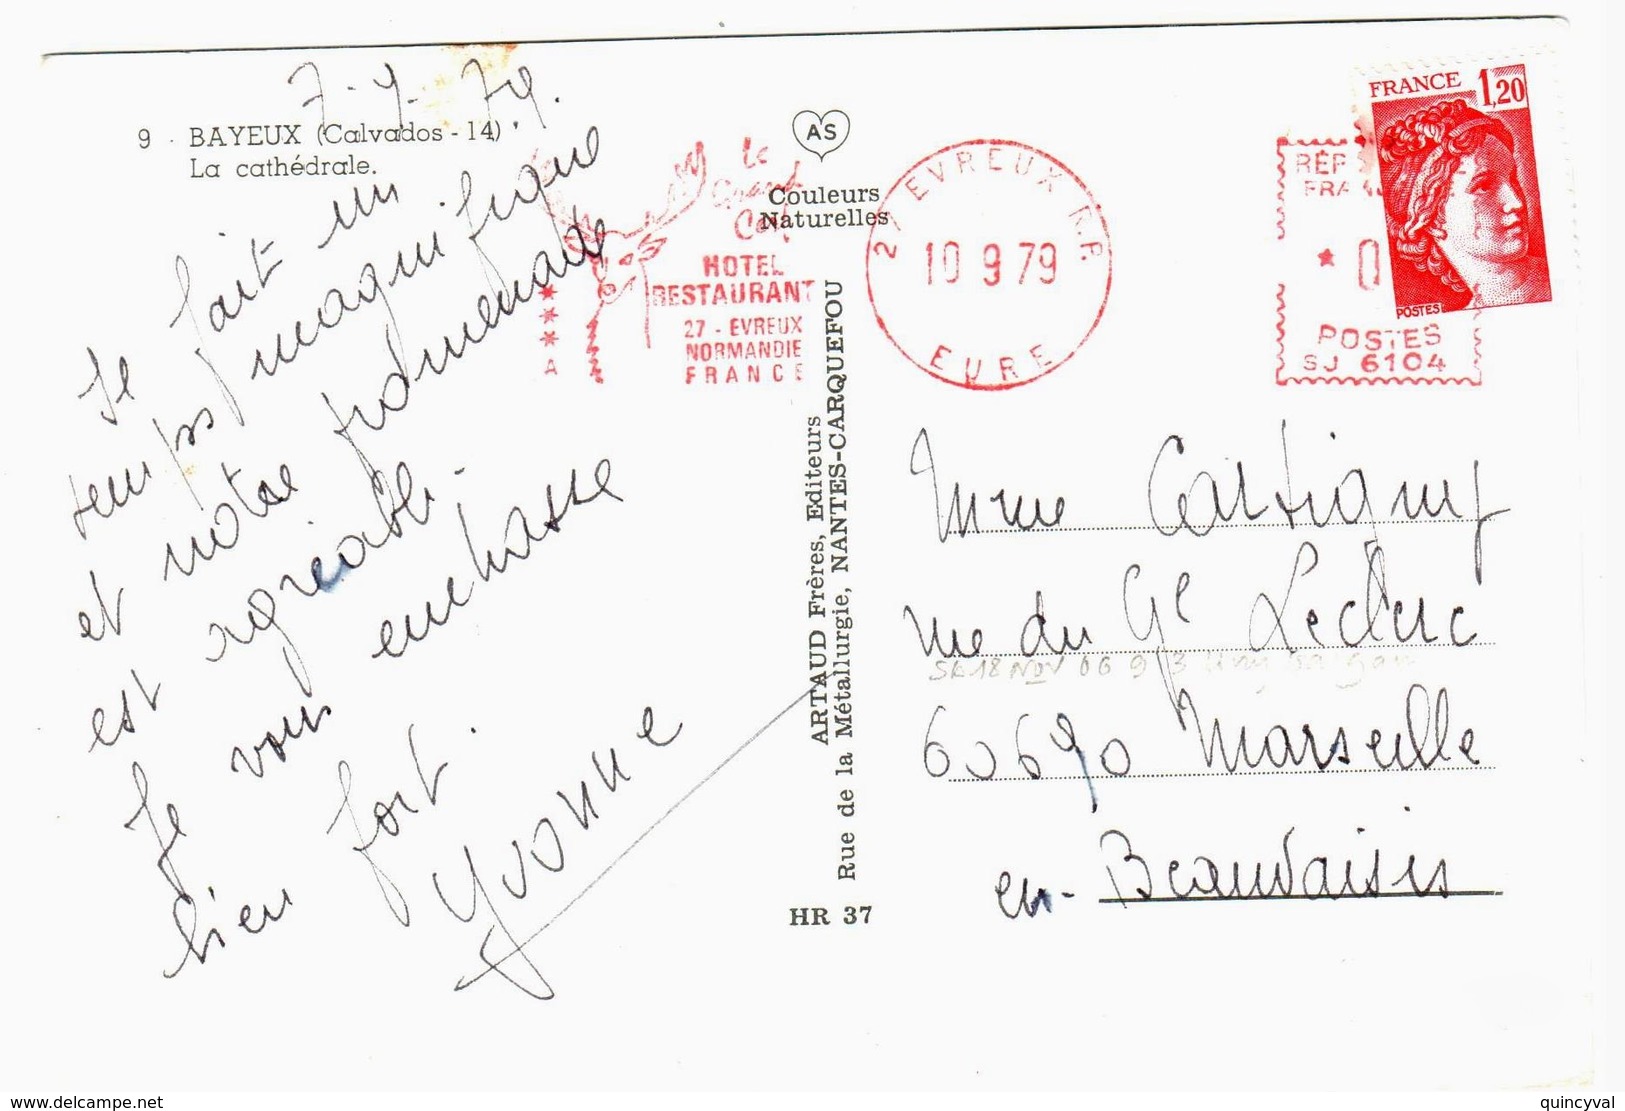 9 - BAYEUX (Calvados - 14)
La cathédrale.
7.9.79.
Je fait un
temps magnifique
et notre promenade
est agréable.
Je vous embrasse
bien fort.
Yvonne
AS
Couleurs
Naturelles
ARTAUD Frères, Editeurs
Rue de la Métallurgie, NANTES-CARQUEFOU
HR 37
Le
Grand
Cerf
HOTEL
RESTAURANT
27 - EVREUX
NORMANDIE
FRANCE
****A
27 EVREUX R.P.
10 9 79
EURE
FRANCE 1,20
POSTES
POSTES
SJ 6104
Mme Cartigny
rue du Gl Leclerc
60690 Marseille
en - Beauvaisis
delcampe.net
quincyval